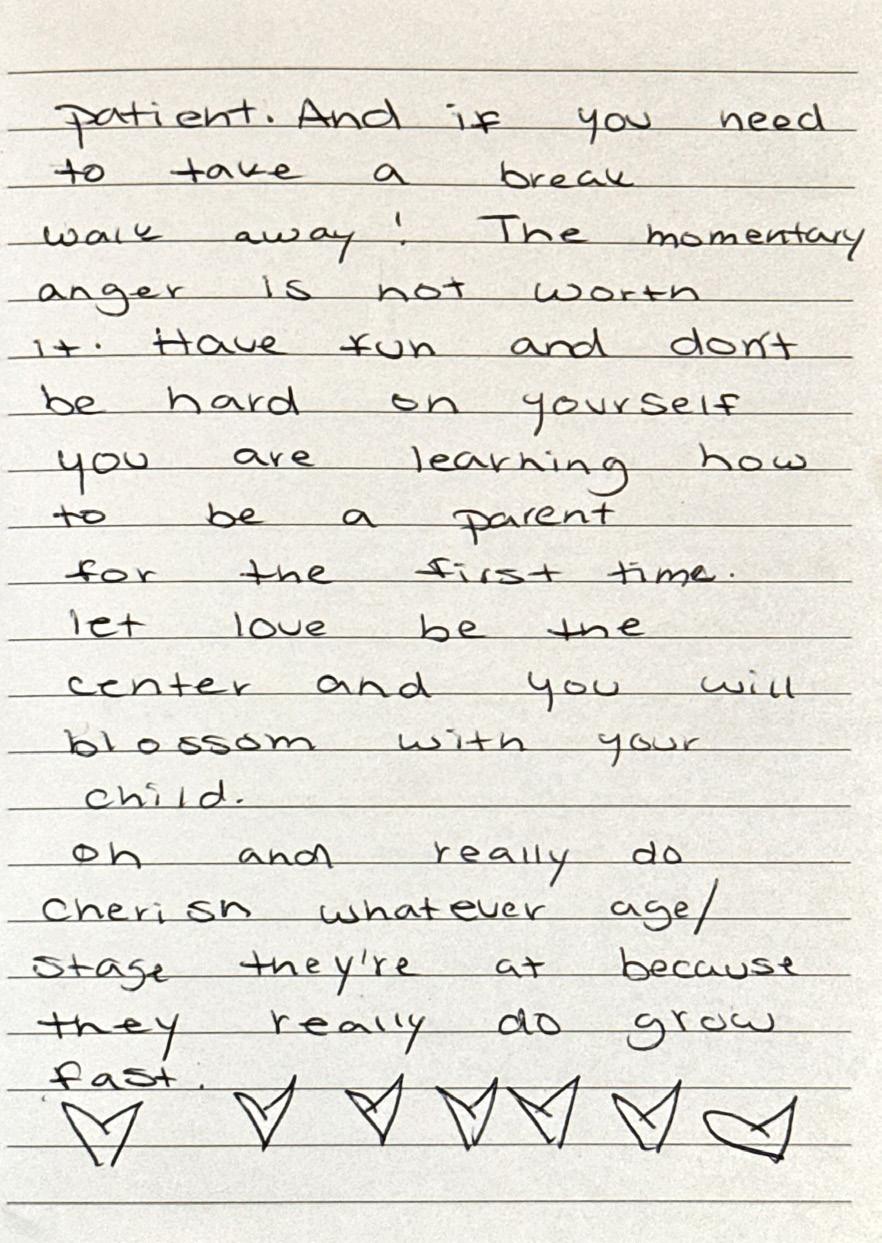 patient. And if you need
to take a break
walk away! The momentary
anger is not worth
it. Have fun and don't
be hard on yourself
you are learning how
to be a parent
for the first time.
let love be the
center and you will
blossom with your
child.
Oh and really do
cherish whatever age/
stage they're at because
they really do grow
fast.